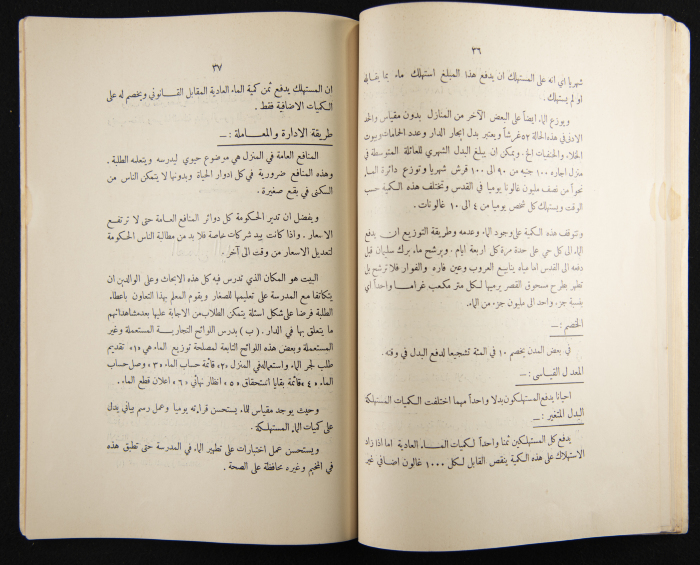 ٣٦
شهريا اي انه على المستهلك ان يدفع هذا المبلغ استهلك ماء بما يقابله
او لم يستهلك .
ويوزع الماء ايضاً على البعض الآخر من المنازل بدون مقياس والحد
الادنى في هذه الحالة ٥٢ غرشاً ويعتبر بدل ايجار الدار وعدد الحمامات وبيوت
الخلاء والحنفيات الخ . ويمكن ان يبلغ البدل الشهري للعائلة المتوسطة في
منزل اجاره ١٠٠ جنيه من ٩٠ الى ١٠٠ قرش شهريا وتوزع دائرة الماء
نحواً من نصف مليون غالونا يوميا في القدس وتختلف هذه الكمية حسب
الوقت ويستهلك كل شخص يوميا من ٤ الى ١٠ غالونات .
وتتوقف هذه الكمية على وجود الماء وعدمه وطريقة التوزيع ان يدفع
الماء الى كل حي على حدة مرة كل اربعة ايام . ويرشح ماء برك سليمان قبل
دفعه الى القدس اما مياه ينابيع العروب وعين فاره والفوار فلا ترشح بل
تطهر بطرح مسحوق القصر يرميها لكل متر مكعب غراما واحداً اي
بنسبة جزء واحد الى مليون جزء من الماء .
الخصم : —
في بعض المدن يخصم ١٠ في المئة تشجيعا لدفع البدل في وقته .
المعدل القياسي : —
احيانا يدفع المستهلكون بدلا واحداً مهما اختلفت الكميات المستهلكة
البدل المتغير : —
يدفع كل المستهلكين ثمنا واحداً لكميات الماء العادية اما اذا زاد
الاستهلاك على هذه الكمية ينقص القابل لكل ١٠٠٠ غالون اضافي غير
٣٧
ان المستهلك يدفع ثمن كمية الماء العادية المقابل القانوني ويخصم له على
الكميات الاضافية فقط .
طريقة الادارة والمعاملة : —
المنافع العامة في المنزل هي موضوع حيوي ليدرسه ويتعلمه الطلبة .
وهذه المنافع ضرورية في كل ادوار الحياة وبدونها لا يتمكن الناس من
السكنى في بقع صغيرة .
ويفضل ان تدير الحكومة كل دوائر المنافع العامة حتى لا ترتفع
الاسعار . واذا كانت بيد شركات خاصة فلا بد من مطالبة الناس الحكومة
لتعديل الاسعار من وقت الى آخر .
البيت هو المكان الذي تدرس فيه كل هذه الابحاث وعلى الوالدين ان
يتكاتفا مع المدرسة على تعليمها للصغار ويقوم المعلم بهذا التعاون باعطاء
الطلبة فرضا على شكل اسئلة يتمكن الطلاب من الاجابة عليها بعد مشاهداتهم
ما يتعلق بها في الدار . ( ب ) بدرس اللوائح التجارية المستعملة وغير
المستعملة وبعض هذه اللوائح التابعة لمصلحة توزيع الماء هي «١» تقديم
طلب لجر الماء واستعماله في المنزل «٢» قائمة حساب الماء «٣» وصل حساب
الماء «٤» قائمة بقايا استحقاق «٥» انظار نهائي «٦» اعلان قطع الماء .
وحيث يوجد مقياس للماء يستحسن قراءته يوميا وعمل رسم بياني يدل
على كميات الماء المستهلكة .
ويستحسن عمل اختبارات على تطهير الماء في المدرسة حتى تطبق هذه
في المخيم وغيره محافظة على الصحة .